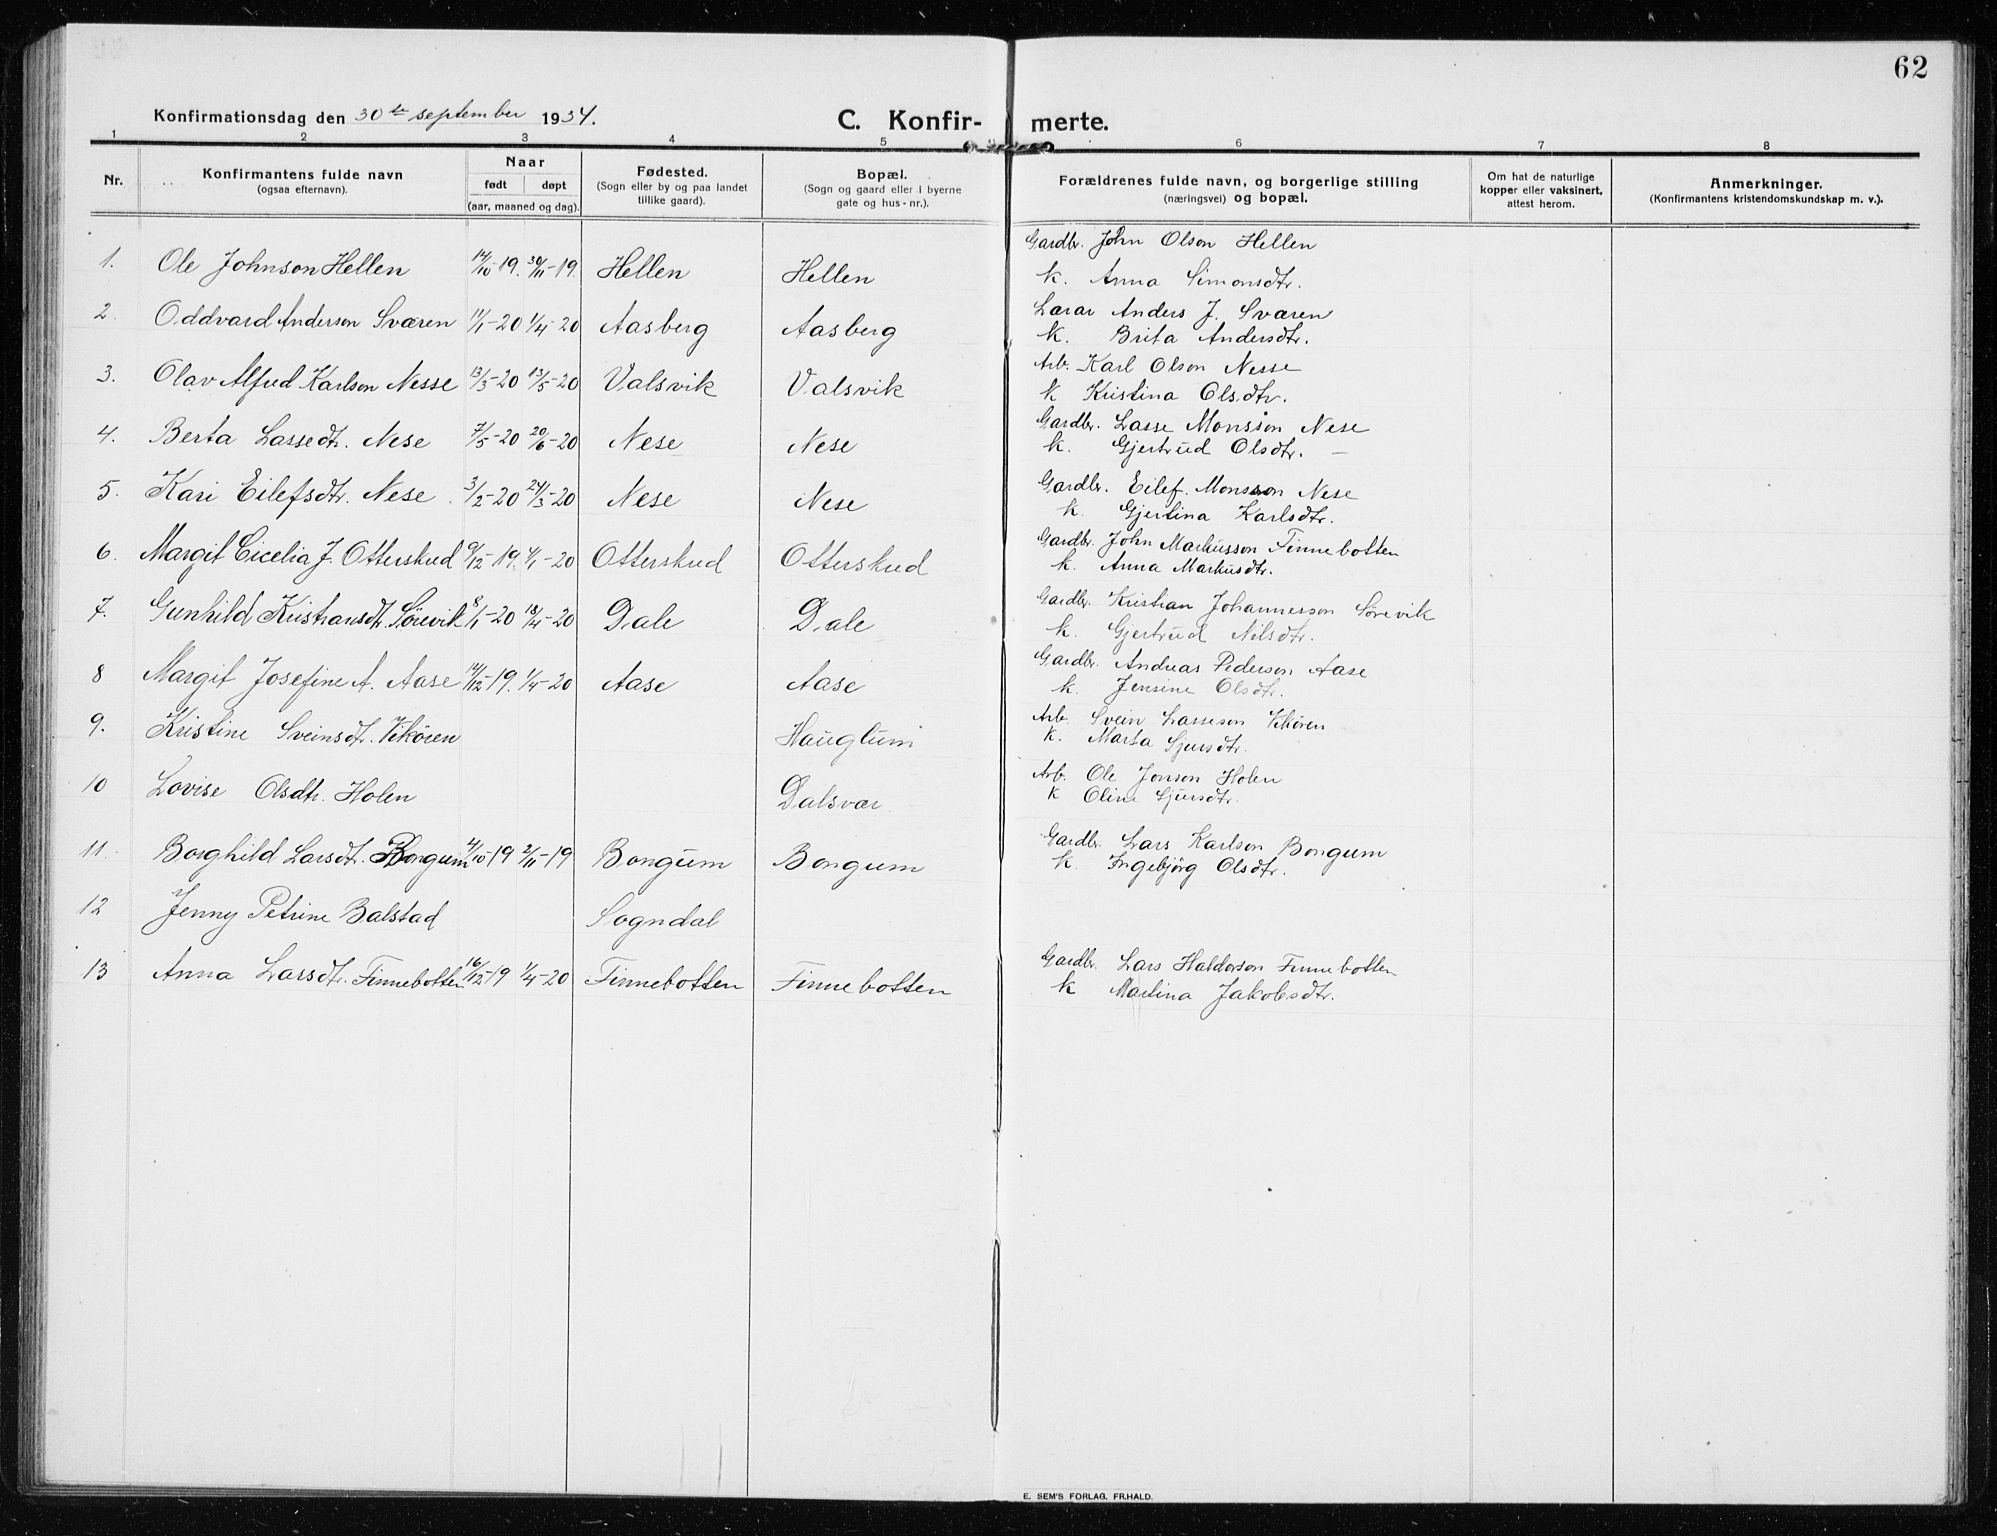 62
Konfirmationsdag den 30te september 1934.
C. Konfirmerte.
1 2 3 4 5 6 7 8
Nr. Konfirmantens fulde navn (ogsaa efternavn). Naar født døpt (aar, maaned og dag). Fødested. (Sogn eller by og paa landet tillike gaard). Bopæl. (Sogn og gaard eller i byerne gate og hus-nr.). Forældrenes fulde navn, og borgerlige stilling (næringsvei) og bopæl. Om hat de naturlige kopper eller vaksinert, attest herom. Anmerkninger. (Konfirmantens kristendomskundskap m. v.).
1. Ole Johnson Hellen 14/10-19. 30/11-19. Hellen Hellen Gardbr. John Olson Hellen
k. Anna Simonsdtr.
2. Oddvard Anderson Sværen 11/1-20 1/4-20 Aasberg Aasberg Lærar Anders J. Sværen
k. Brita Andersdtr.
3. Olav Alfred Karlson Nesse 13/3-20 13/5-20 Valsvik Valsvik Arb. Karl Olson Nesse
k Kristina Olsdtr.
4. Berta Lassedtr. Nese 7/5-20 20/6-20 Nese Nese Gardbr. Lasse Monsson Nese
k. Gjertrud Olsdtr. -
5. Kari Eilefsdtr. Nese 3/2-20 24/3-20 Nese Nese Gardbr. Eilef. Monsson Nese
k. Gjertina Karlsdtr.
6. Margit Cicelia J. Otterskred 9/12-19. 4/1-20 Otterskred Otterskred Gardbr. John Markusson Finnebotten
k. Anna Markusdtr.
7. Gunhild Kristiansdtr. Sørevik 8/1-20 18/4-20 Dale Dale Gardbr. Kristian Johannesson Sørevik
k. Gjertrud Nilsdtr.
8 Margit Josefine A. Aase 14/12-19. 1/4-20 Aase Aase Gardbr. Andreas Pederson Aase
k. Jensine Olsdtr.
9. Kristine Sveinsdtr. Vikören Hauglum Arb. Svein Lasseson Vikören
k. Marta Sjursdtr.
10 Lovise Olsdtr. Holen Dalsvær Arb. Ole Jonson Holen
k Oline Sjursdtr.
11. Borghild Larsdtr. Bongum 4/10-19 2/11-19 Bongum Bongum Gardbr. Lars Karlson Bongum
k. Ingebjörg Olsdtr.
12 Jenny Petrine Balstad Sogndal
13 Anna Larsdtr. Finnebotten 16/12-19 1/4-20 Finnebotten Finnebotten Gardbr. Lars Haldorson Finnebotten
k Martina Jakobsdtr.
E. SEM'S FORLAG, FR.HALD.